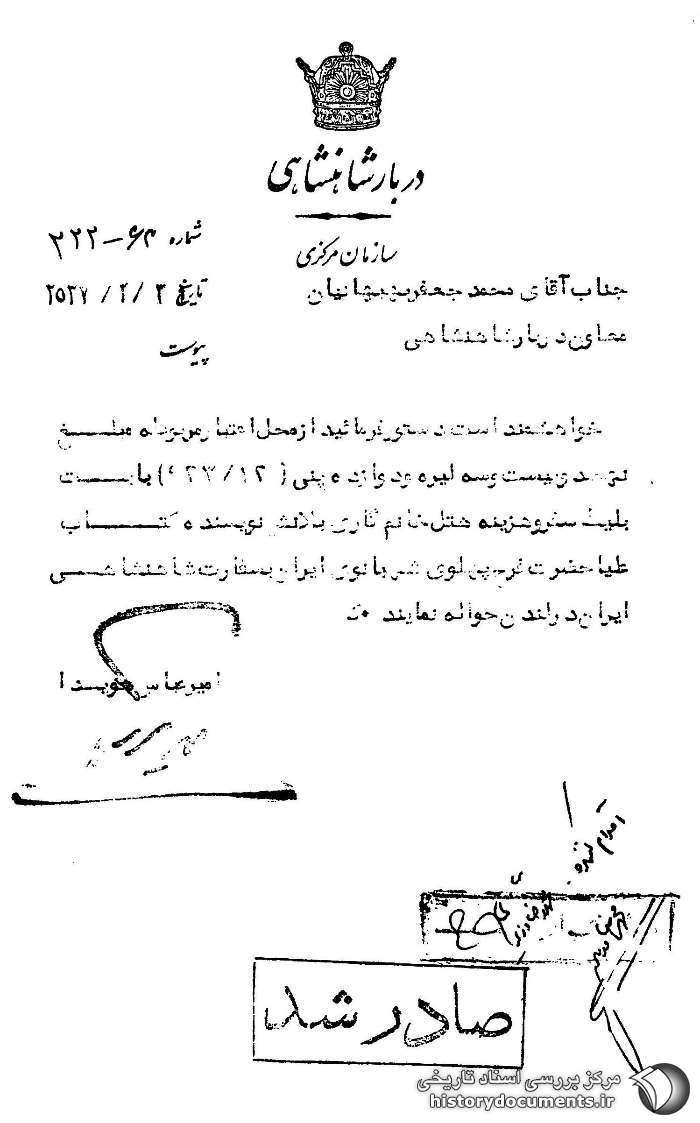 دربار شاهنشاهی
سازمان مرکزی
شماره ۶۴-۲۲۲
تاریخ ۲ / ۲ / ۲۵۳۷
پیوست
جناب آقای محمد جعفر بهبهانیان
معاون دربار شاهنشاهی
خواهشمند است دستور فرمائید از محل اعتبار مربوطه مبلغ
نهصد و بیست و سه لیره و دوازده پنی (۹۲۳/۱۲) بابت
بلیط سفر و هزینه هتل خانم لزلی بلانش نویسنده کتاب
علیاحضرت فرح پهلوی شهبانوی ایران بسفارت شاهنشاهی
ایران در لندن حواله نمایند
امیرعباس هویدا
اقدام شده
صادر شد
مرکز بررسی اسناد تاریخی
historydocuments.ir